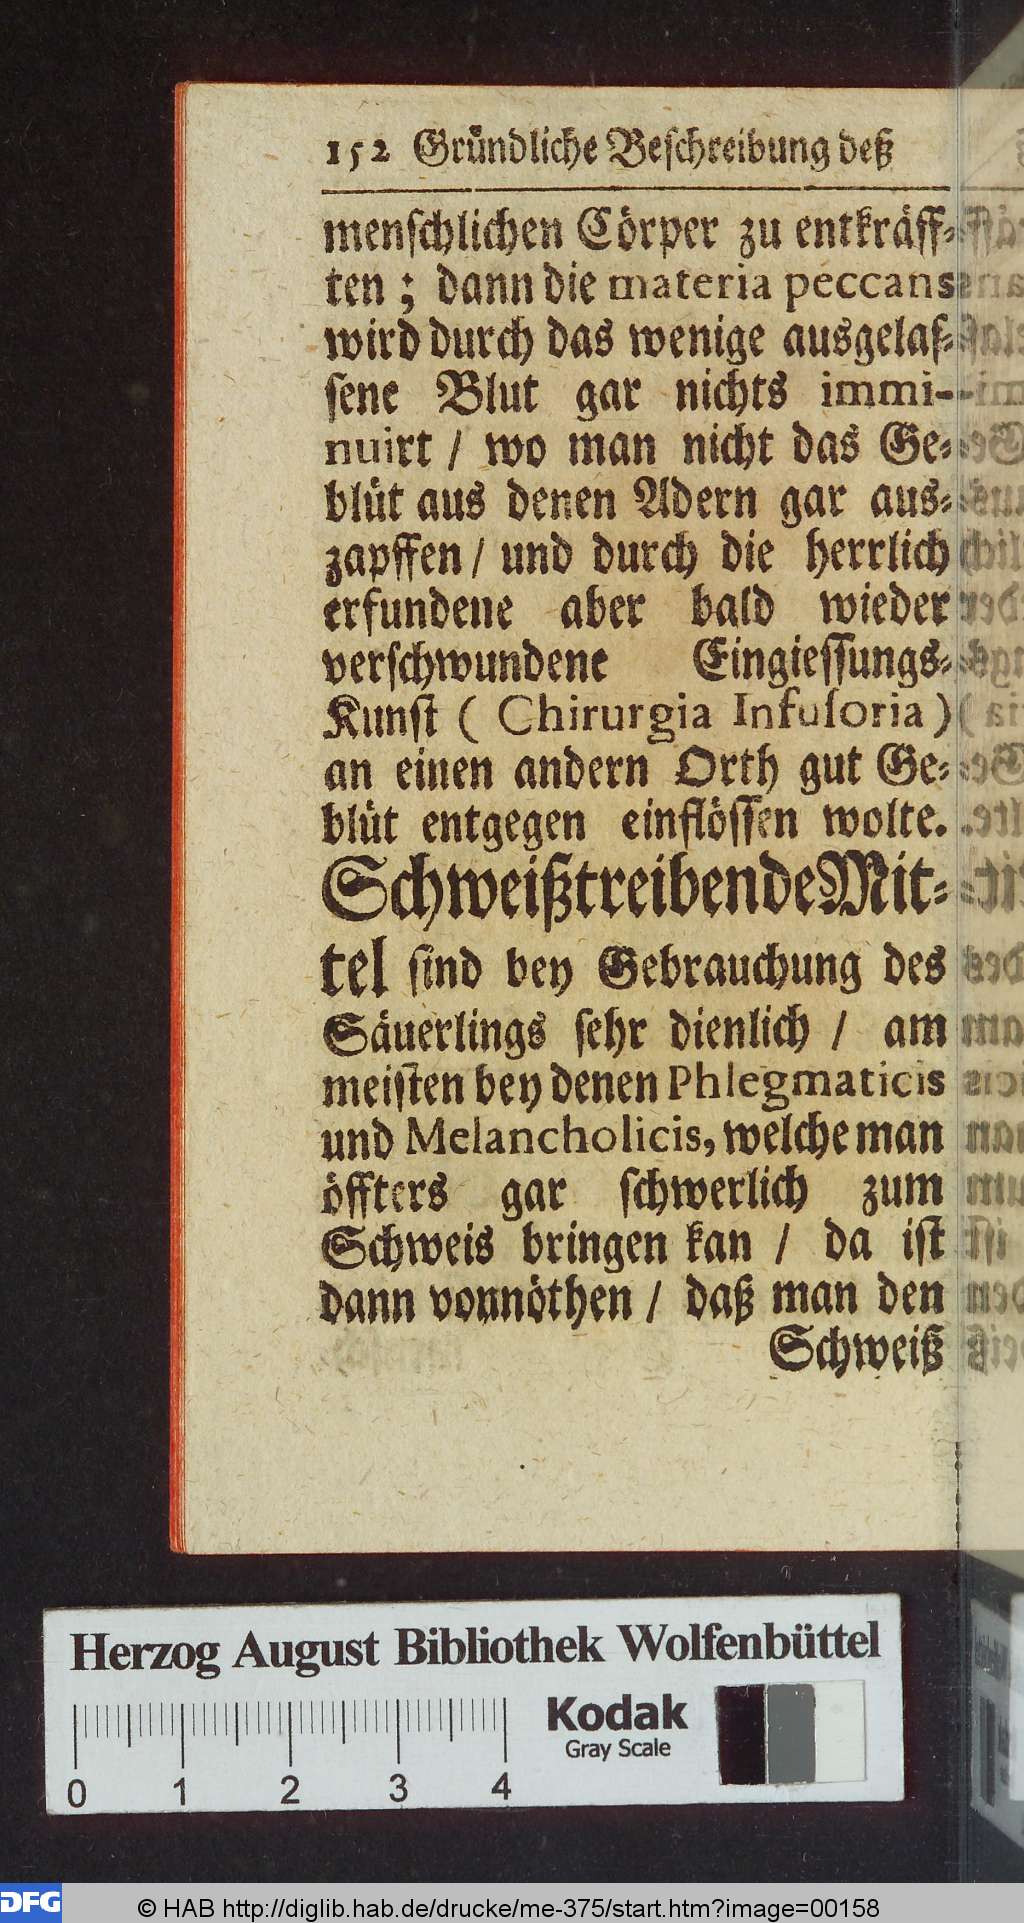 152 Gründliche Beschreibung deß
menschlichen Cörper zu entkräff⸗
ten ; dann die materia peccans
wird durch das wenige ausgelas⸗
sene Blut gar nichts immi-
nuirt / wo man nicht das Ge⸗
blüt aus denen Adern gar aus⸗
zapffen / und durch die herrlich
erfundene aber bald wieder
verschwundene Eingiessungs⸗
Kunst ( Chirurgia Infusoria )
an einen andern Orth gut Ge⸗
blüt entgegen einflössen wolte.
Schweißtreibende Mit⸗
tel sind bey Gebrauchung des
Säuerlings sehr dienlich / am
meisten bey denen Phlegmaticis
und Melancholicis, welche man
öffters gar schwerlich zum
Schweis bringen kan / da ist
dann vonnöthen / daß man den
Schweiß
Herzog August Bibliothek Wolfenbüttel
Kodak
Gray Scale
0 1 2 3 4
DFG
© HAB http://diglib.hab.de/drucke/me-375/start.htm?image=00158